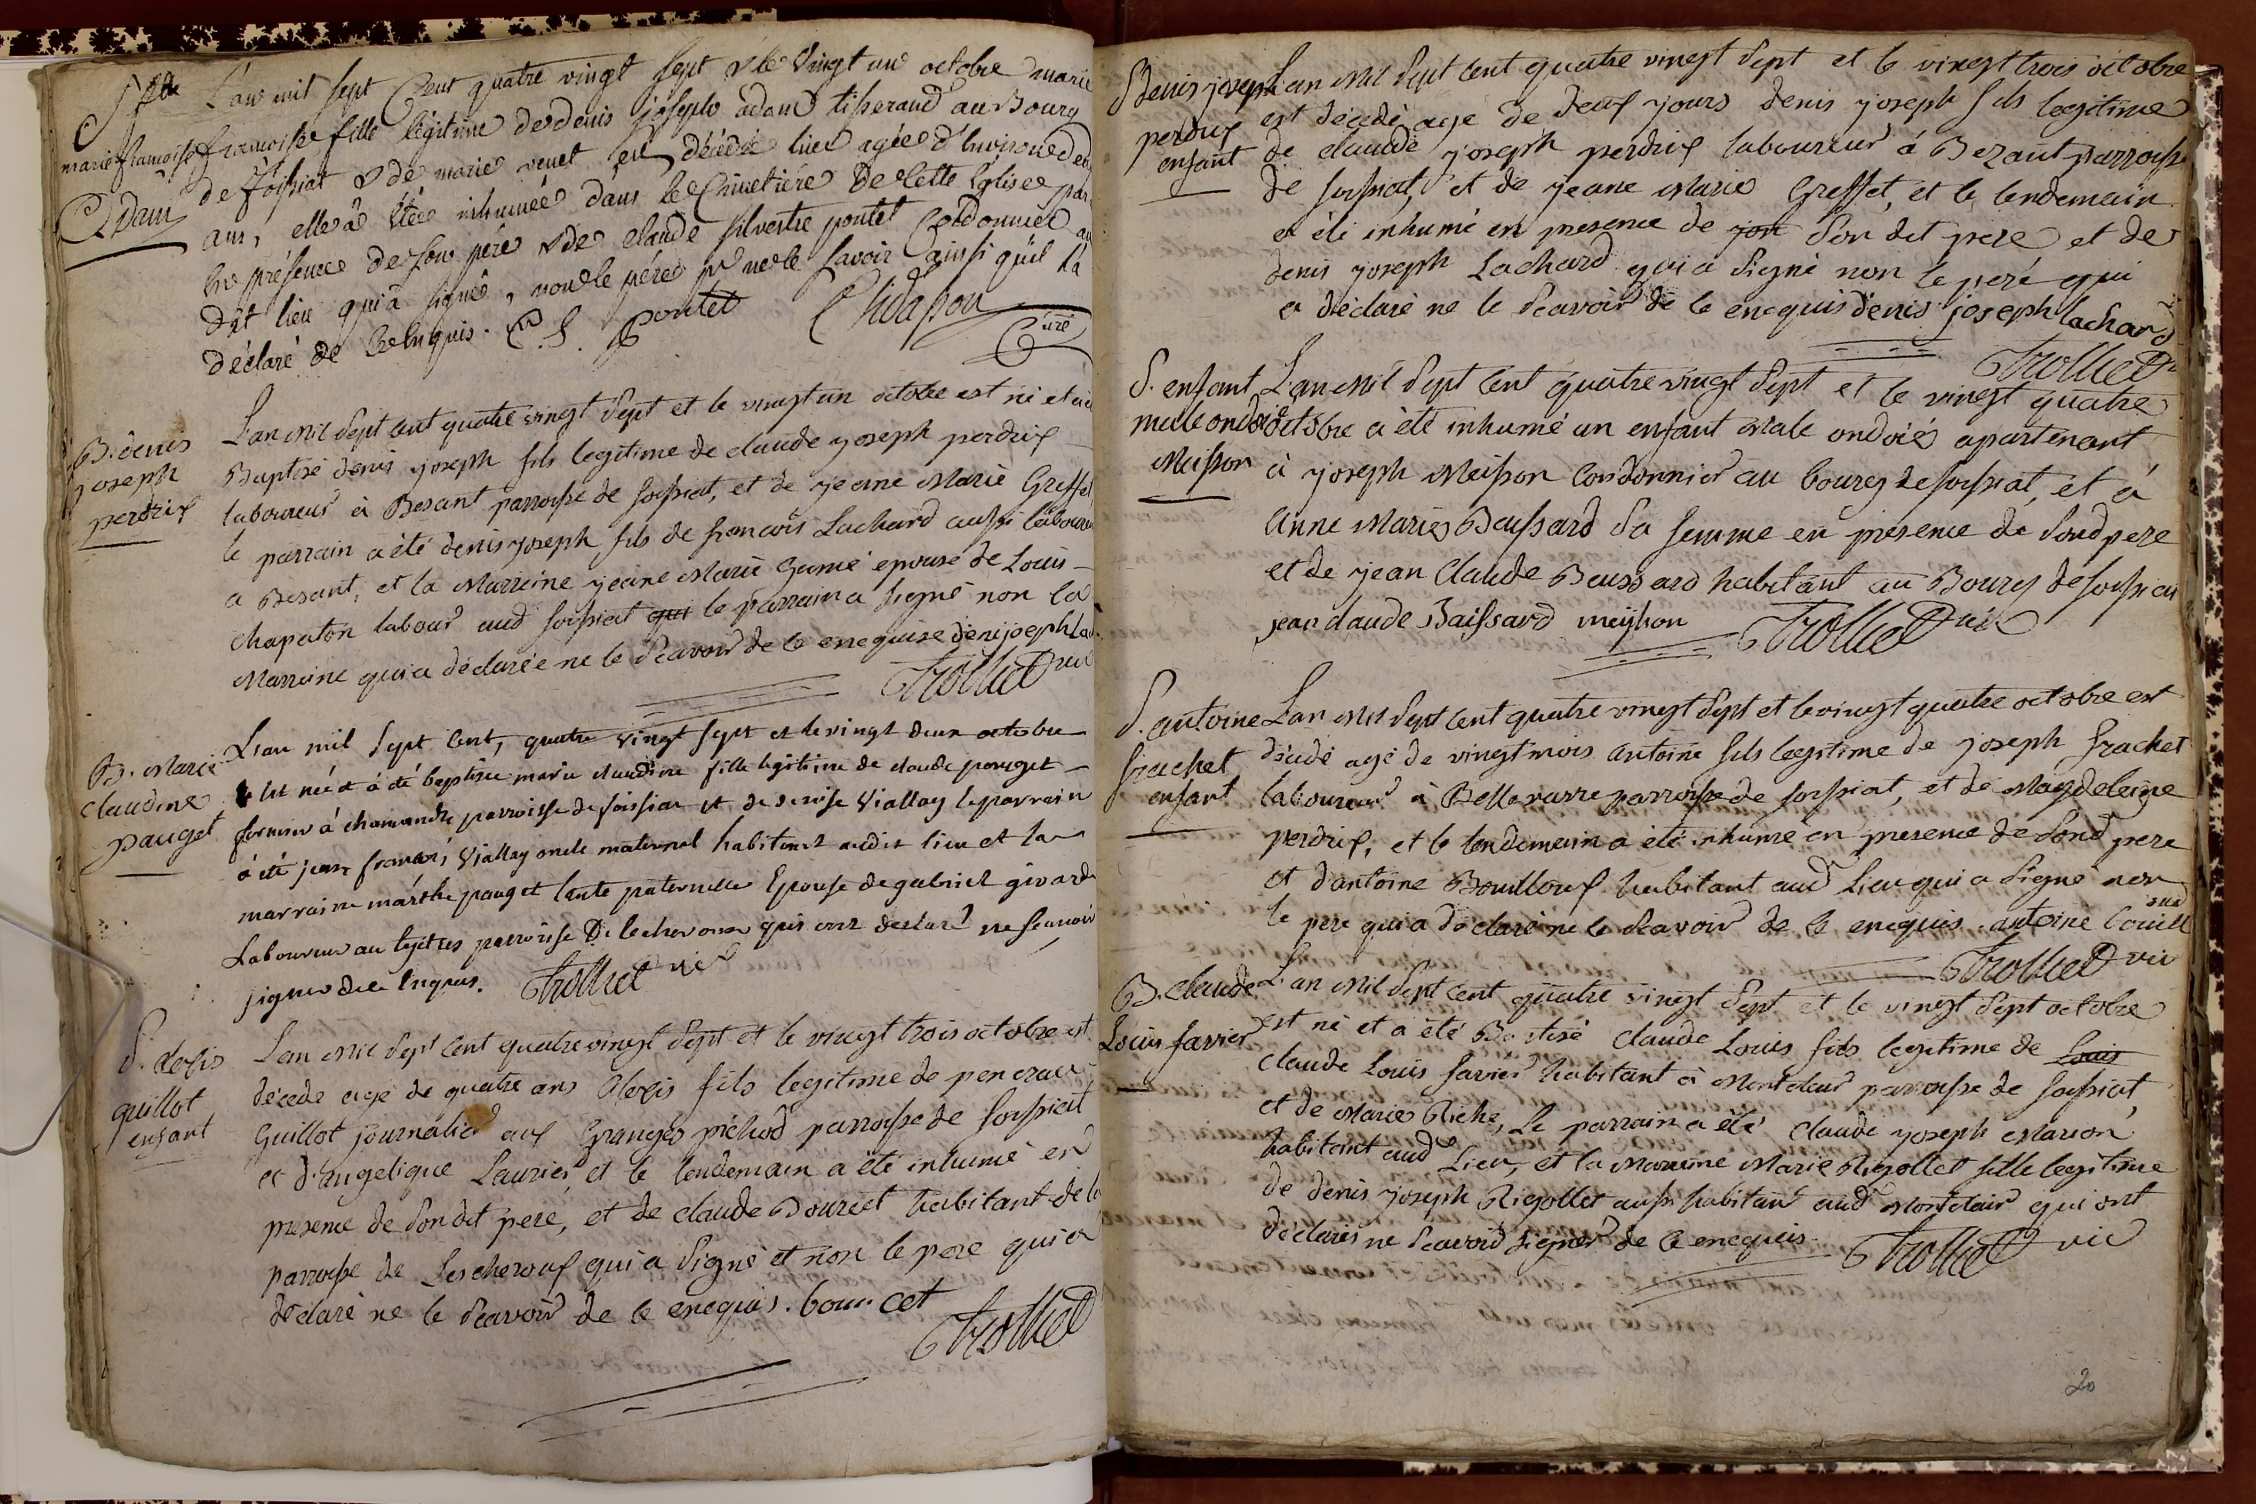 Sple
marie françoise
Adam
L'an mil sept Cent quatre vingt sept & le vingt un octobre marie
françoise fille légitime de denis joseph adam tisserand au Bourg
de foissiat & de marie venet est décédée hier agée d'environ deux
ans, elle a été inhumée dans le Cimetière de cette Eglise par
en présence de son père & de claude silvestre pontet Cordonnier au
dit lieu qui a signé, non le père pr ne le savoir ainsi qu'il l'a
déclaré de ce enquis. C. S. Pontet Chidapou
Curé
B. denis
joseph
perdrix
L'an mil sept cent quatre vingt sept et le vingt un octobre est né et a été
Baptisé denis joseph fils legitime de claude joseph perdrix
laboureur à Besant parroisse de foissiat, et de jeanne Marie Greffet
le parrain a été denis joseph fils de françois Lachard aussi laboureur
a Besant, et la Marraine jeanne Marie Gamé epouse de Louis
chapaton labour aud foissiat qui le parrain a signé non la
Marraine qui a déclarée ne le scavoir de ce enequise denijoseph La
Trolliet vic
B. Marie
claudine
pauget
L'an mil sept cent, quatre vingt sept et le vingt deux octobre
est née et a été baptisée marie claudine fille legitime de claude pauget
fermier à chamandre parroisse de foissiat et de denise Viallay le parrain
à été jean françois Viallay oncle maternel habitant audit lieu et la
marraine marthe pauget tante paternelle Epouse de gabriel girard
Laboureur au parroisse De lecheroux qui ont declaré ne scavoir
signer de ce enquis. Trolliet vic
S. alexis
guillot
enfant
L'an mil sept cent quatre vingt sept et le vingt trois octobre est
décédé agé de quatre ans Alexis fils legitime de
Guillot journalier aux Granges pichod parroisse de foissiat
et d'angelique Laurier, et le lendemain a été inhumé en
presence de son dit pere, et de claude Bourcet habitant de la
parroisse de Lescheroux qui a signé et non le pere qui a
déclaré ne le scavoir de ce enequis. bourcet
Trolliet
S denis joseph
perdrix
enfant
L'an mil sept cent quatre vingt sept et le vingt trois octobre
est décédé agé de deux jours denis joseph fils legitime
de claude joseph perdrix laboureur à Bezant parroisse
de foissiat, et de jeane Marie Greffet, et le lendemain
a été inhumé en presence de son dit pere et de
denis joseph Lachard qui a signé non le peré qui
a déclaré ne le scavoir de ce enequis denis joseph lachard
Trolliet
S. enfant
malle ondoié
Maisson
L'an mil sept cent quatre vingt sept et le vingt quatre
octobre a été inhumé un enfant male ondoié apartenant
à joseph Maisson Cordonnier au bourg de foissiat, et à
Anne Marie Baissard sa femme en presence de sond pere
et de jean Claude Baissard habitant au Bourg de foissiat
jean claude Baissard meysson Trolliet vic
S. antoine
frachet
enfant
L'an mil sept cent quatre vingt sept et le vingt quatre octobre est
décédé agé de vingt mois Antoine fils legitime de joseph frachet
laboureur à Bellevavre parroisse de foissiat, et de Magdeleine
perdrix, et le lendemain a été inhumé en presence de sond pere
et d'antoine Bouilloux habitant aud lieu qui a signé non
le pere qui a déclaré ne le scavoir de ce enequis. antoine bouill
oux
Trolliet vic
B. claude
Louis favier
L'an mil sept cent quatre vingt sept et le vingt sept octobre
est né et a été Batisé Claude Louis fils legitime de Louis
claude Louis favier habitant à Montclair parroisse de foissiat
et de Marie Riche, Le parrain a été claude joseph Marion
habitant aud Lieu, et la Marraine Marie Rigollet fille legitime
de denis joseph Rigollet aussi habitant aud Montclair qui ont
déclarés ne scavoir signer de ce enequis.
Trolliet vic
20